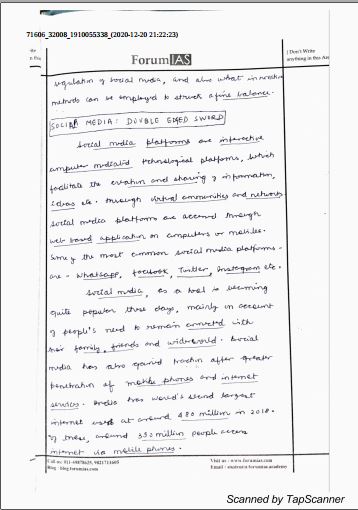 71606_32008_1910055338_(2020-12-20 21:22:23)
ForumIAS
(Don't Write
anything in this Are
regulation of social media, and also what innovative
methods can be employed to struck a fine balance.
SOCIAL MEDIA: DOUBLE EDGED SWORD
Social media platforms are interactive
computer mediated technological platforms, which
facilitate the creation and sharing of information,
ideas etc. through virtual communities and network
social media platforms are accessed through
web based application on computers or mobiles.
Some of the most common social media platforms
are - Whatsapp, facebook, Twitter, Instagram etc.
Social media, as a tool is becoming
quite popular these days, mainly on account
of people's need to remain connected with
their family, friends and wide world. Social
media has also gained traction after greater
penetration of mobile phones and internet
services. India has world's second largest
internet users at around 480 million in 2018.
of these, around 390 million people access
internet via mobile phones.
Call us: 011-49878625, 9821711605
Blog : blog.forumias.com
Visit us : www.forumias.com
Email : student@forumias.academy
Scanned by TapScanner